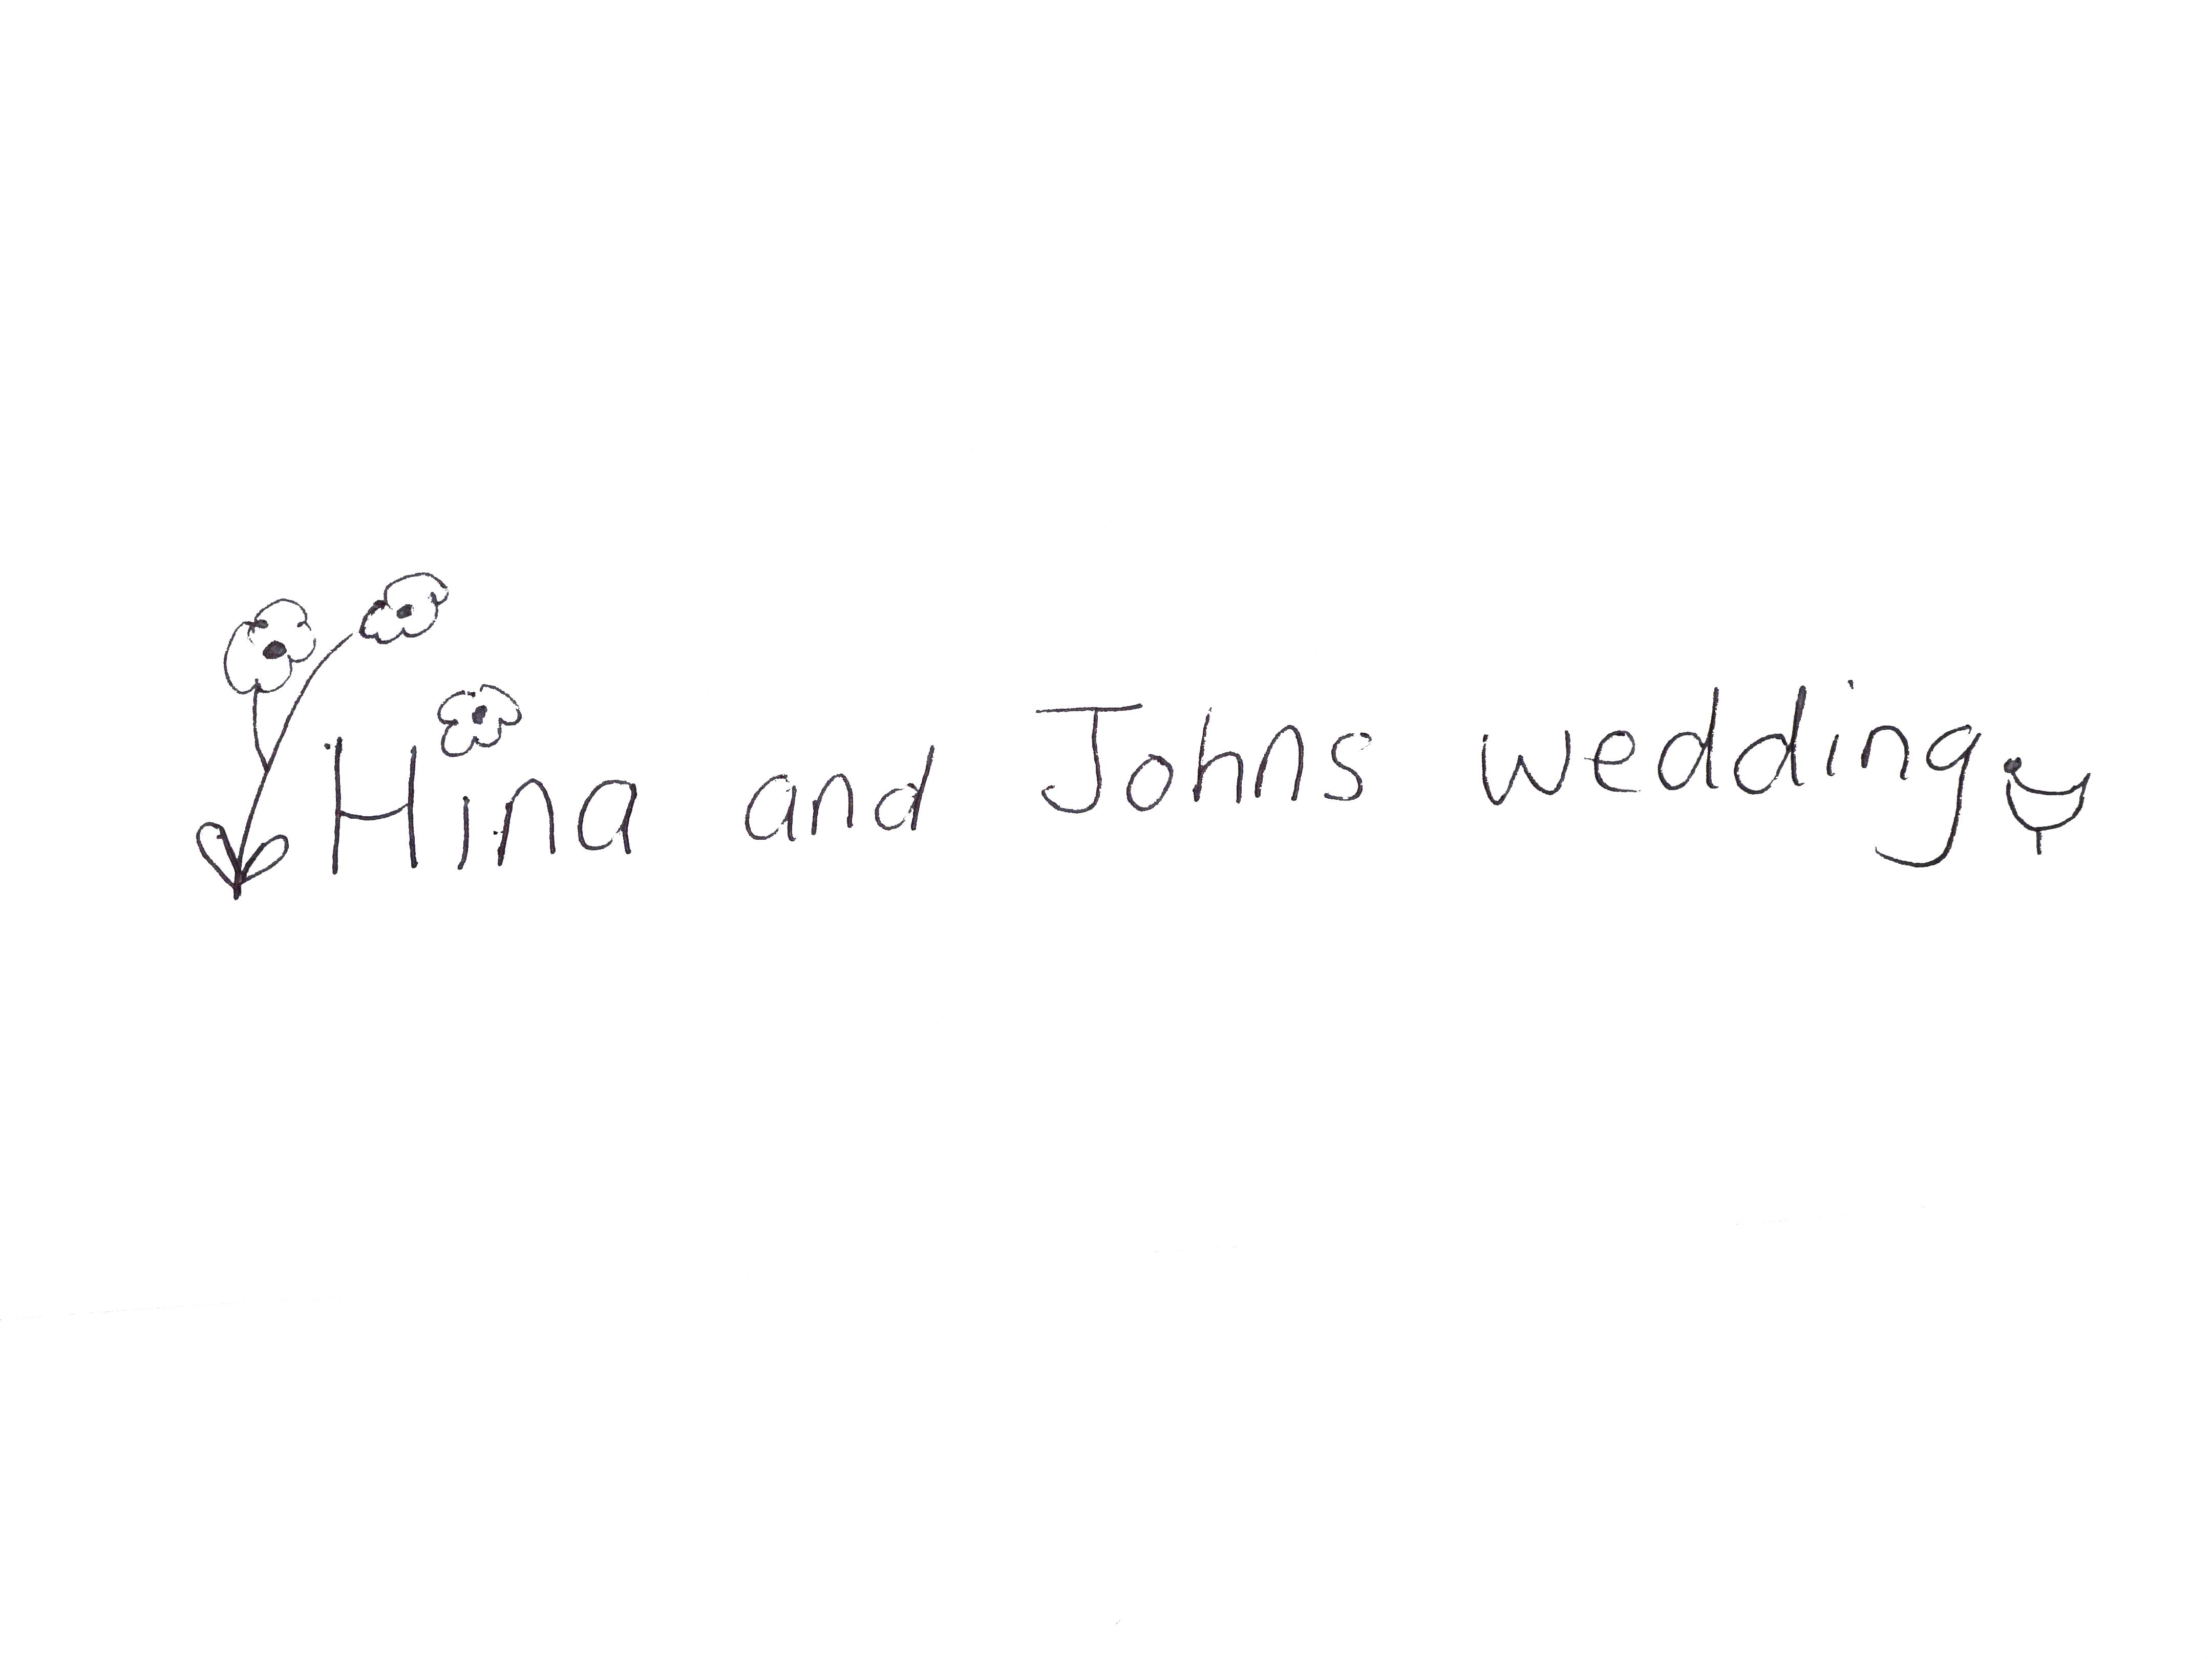 Hina and Johns wedding